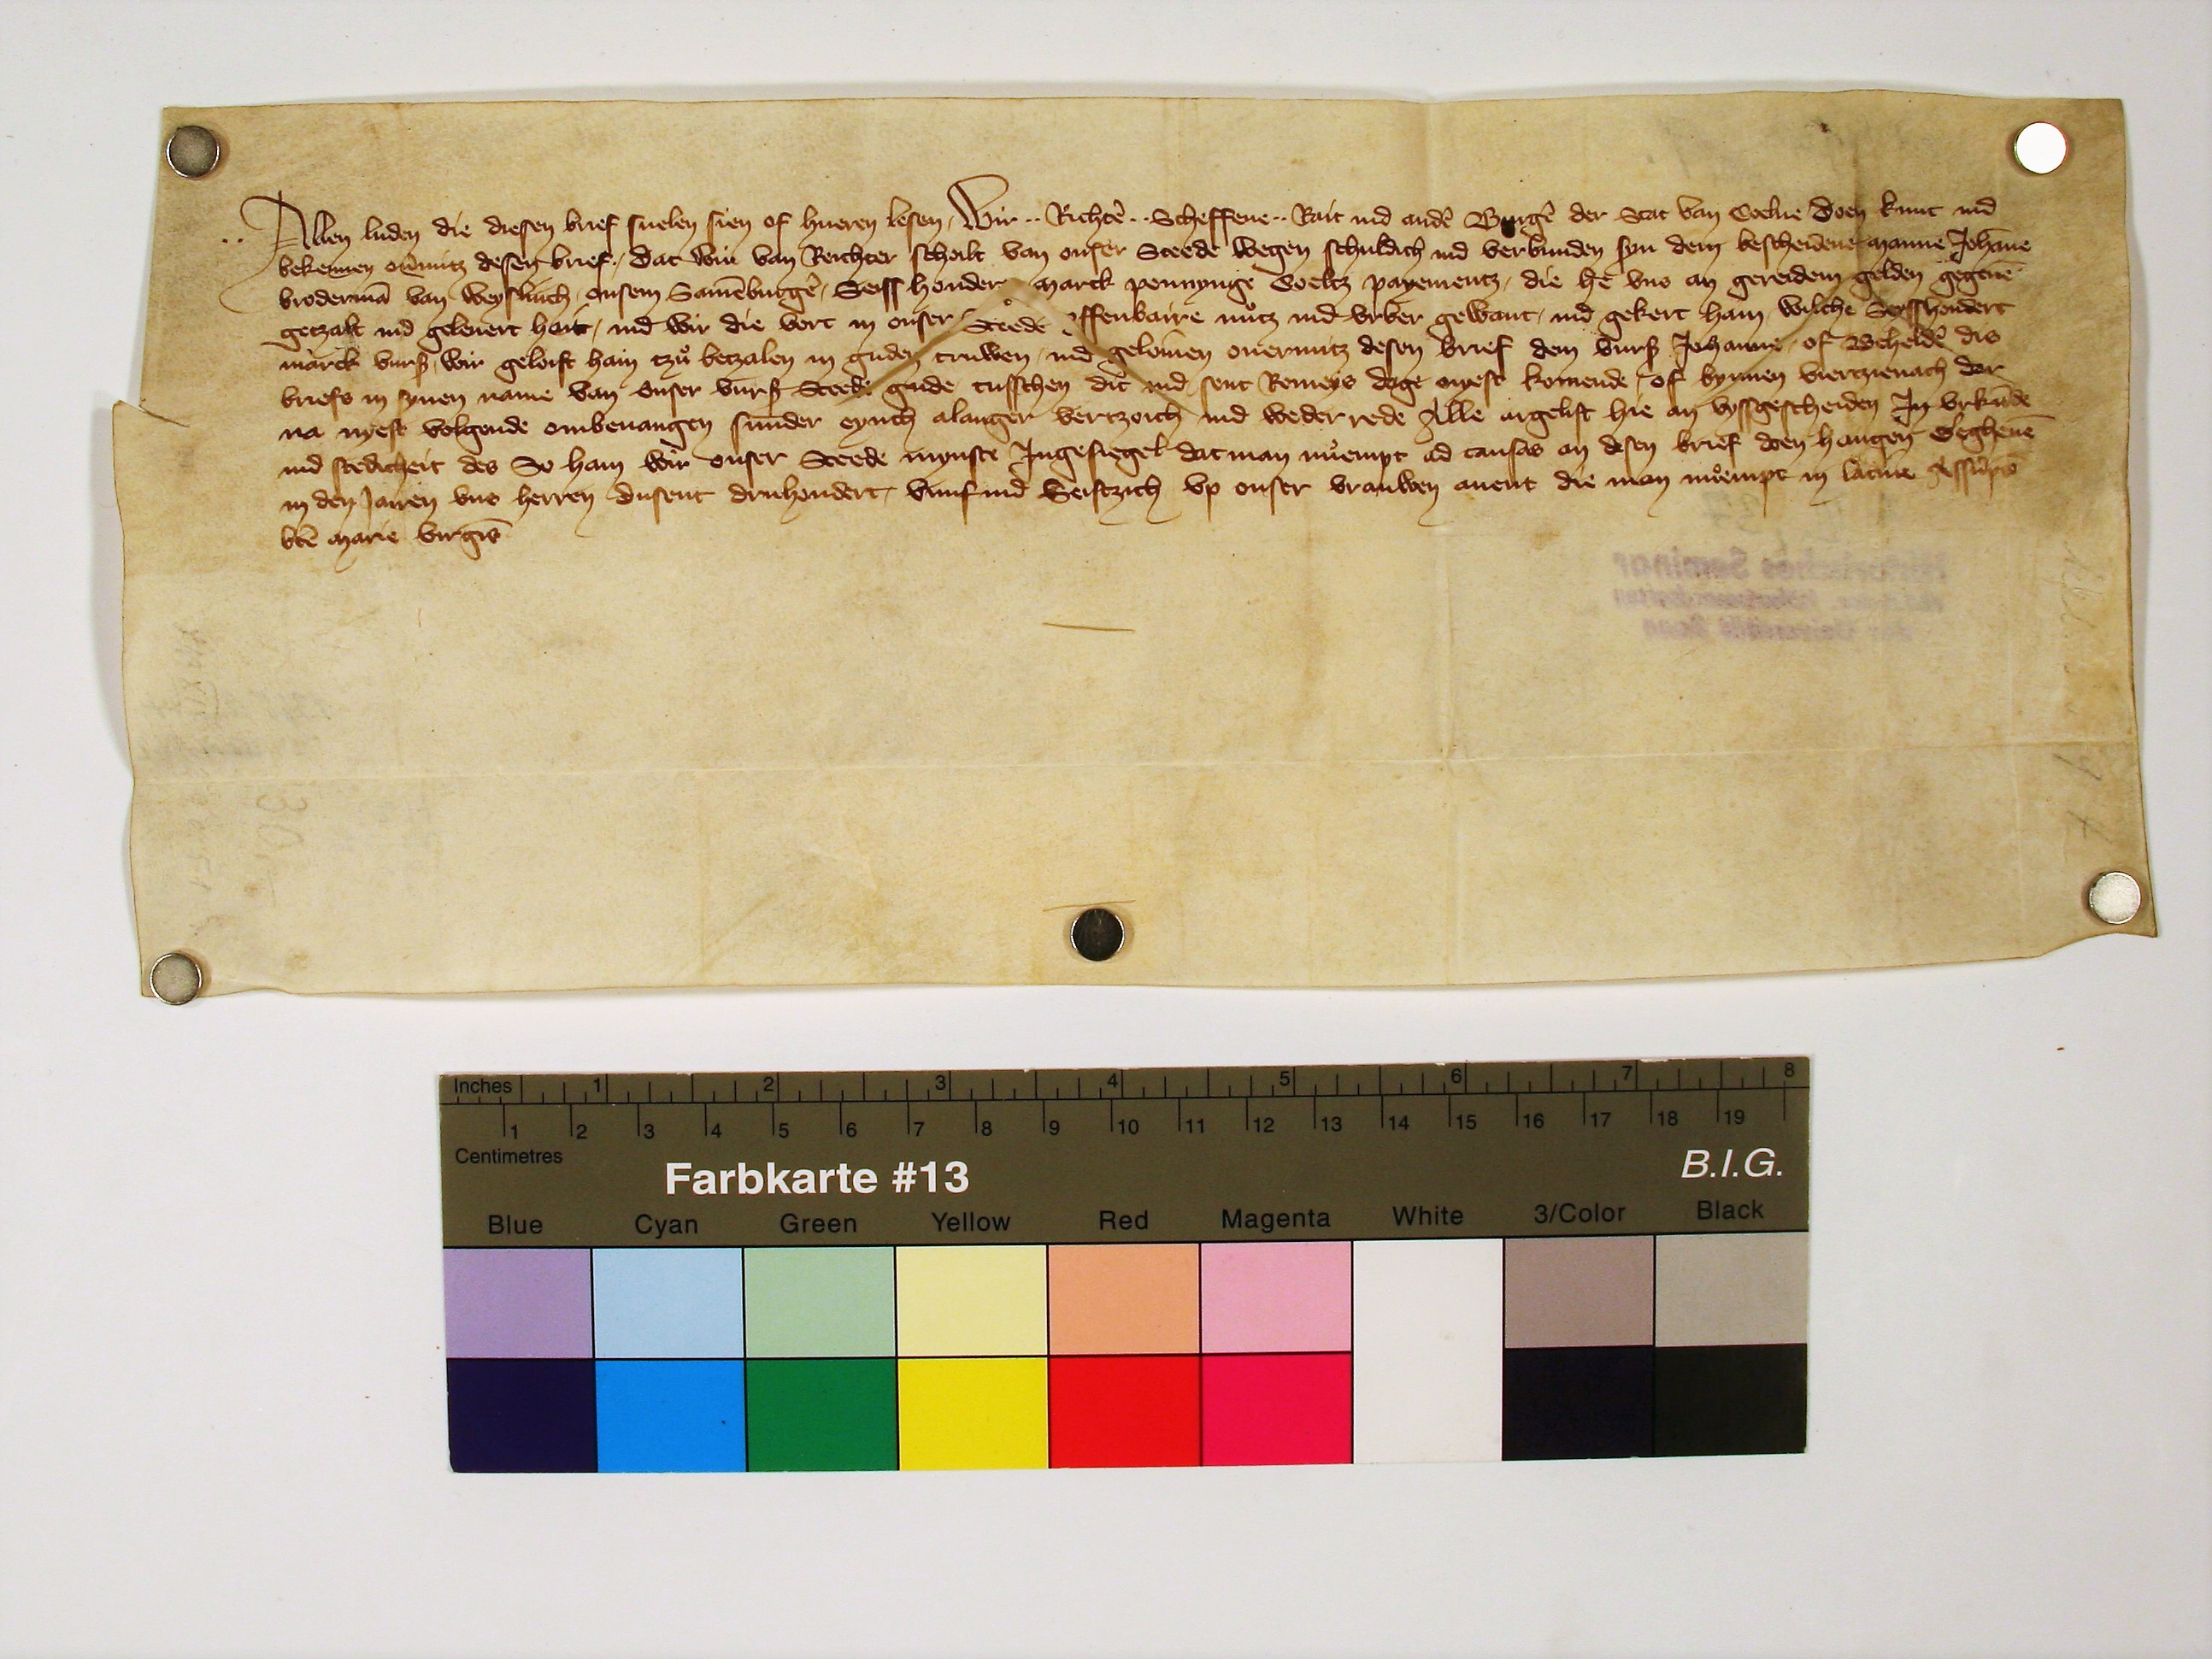 .. Allen luden die diesen brief suelen sien of hueren lesen, Wir .. Richtē .. Scheffene .. Rait ind andē Burgē der Stat van Coelne Doen kunt ind
bekennen ouūmitz desen brief, dat wir van Rechter scholt van onser Steede wegen schuldich ind verbunden syn dem bescheidene manne Johāne
brodermā van onsem Seiss honder marck pennynge Coeltz payementz, die he vns an gereidem gelden gegeuē
getzalt ind geleuert hait, ind wir die vort in onser Steede offenbaire nůtz ind vrber gewant, ind gekert hain, wilche Seysshondert
marck vurß, wir geloift hain tzů betzalen in guden truwen, ind gelouen ouermitz desen brief dem vurß Johanne, of Beheldē dis
briefs in synen name van onser vurß Steede gude tusschen dit ind sent Remeys dage nyest komende, of bynnen viertzienach dar
na nyest volgende ombeuangen sunder eynich alanger vertzoich ind wederrede Alle argelist hie an vyssgescheiden In vrkūde
ind stedicheit des So hain wir onser Steede mynste Ingesiegel dat man nůempt ad causas an desen brief doen hangen Gegheuē
in den Jairen vns herren dusent druhondert, vunf ind Seistzich vp onser vrauwen auent die man nůempt in latine Assūptō
btē marie virgīs
Historisches Seminar
der Universität Bonn
Inches 1 2 3 4 5 6 7 8
1 2 3 4 5 6 7 8 9 10 11 12 13 14 15 16 17 18 19
Centimetres
Farbkarte #13 B.I.G.
Blue Cyan Green Yellow Red Magenta White 3/Color Black